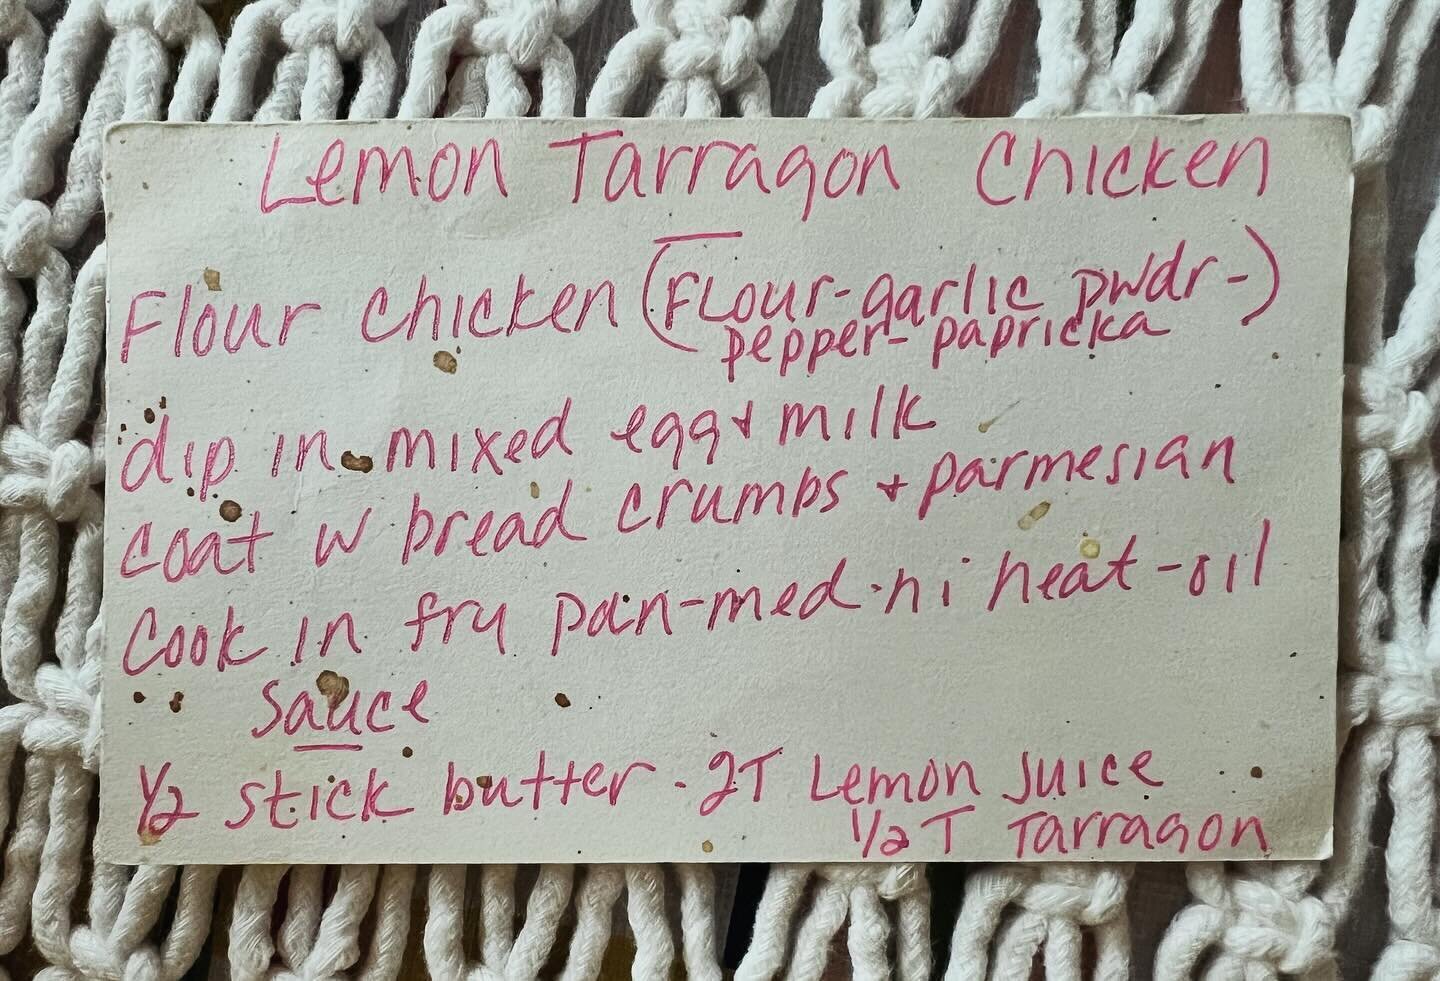 Lemon Tarragon Chicken
Flour chicken (Flour-garlic pwdr-)
pepper-papricka
dip in mixed egg + milk
coat w bread crumbs + parmesian
Cook in fry pan-med-hi heat-oil
sauce
1/2 stick butter - 2T Lemon Juice
1/2 T Tarragon